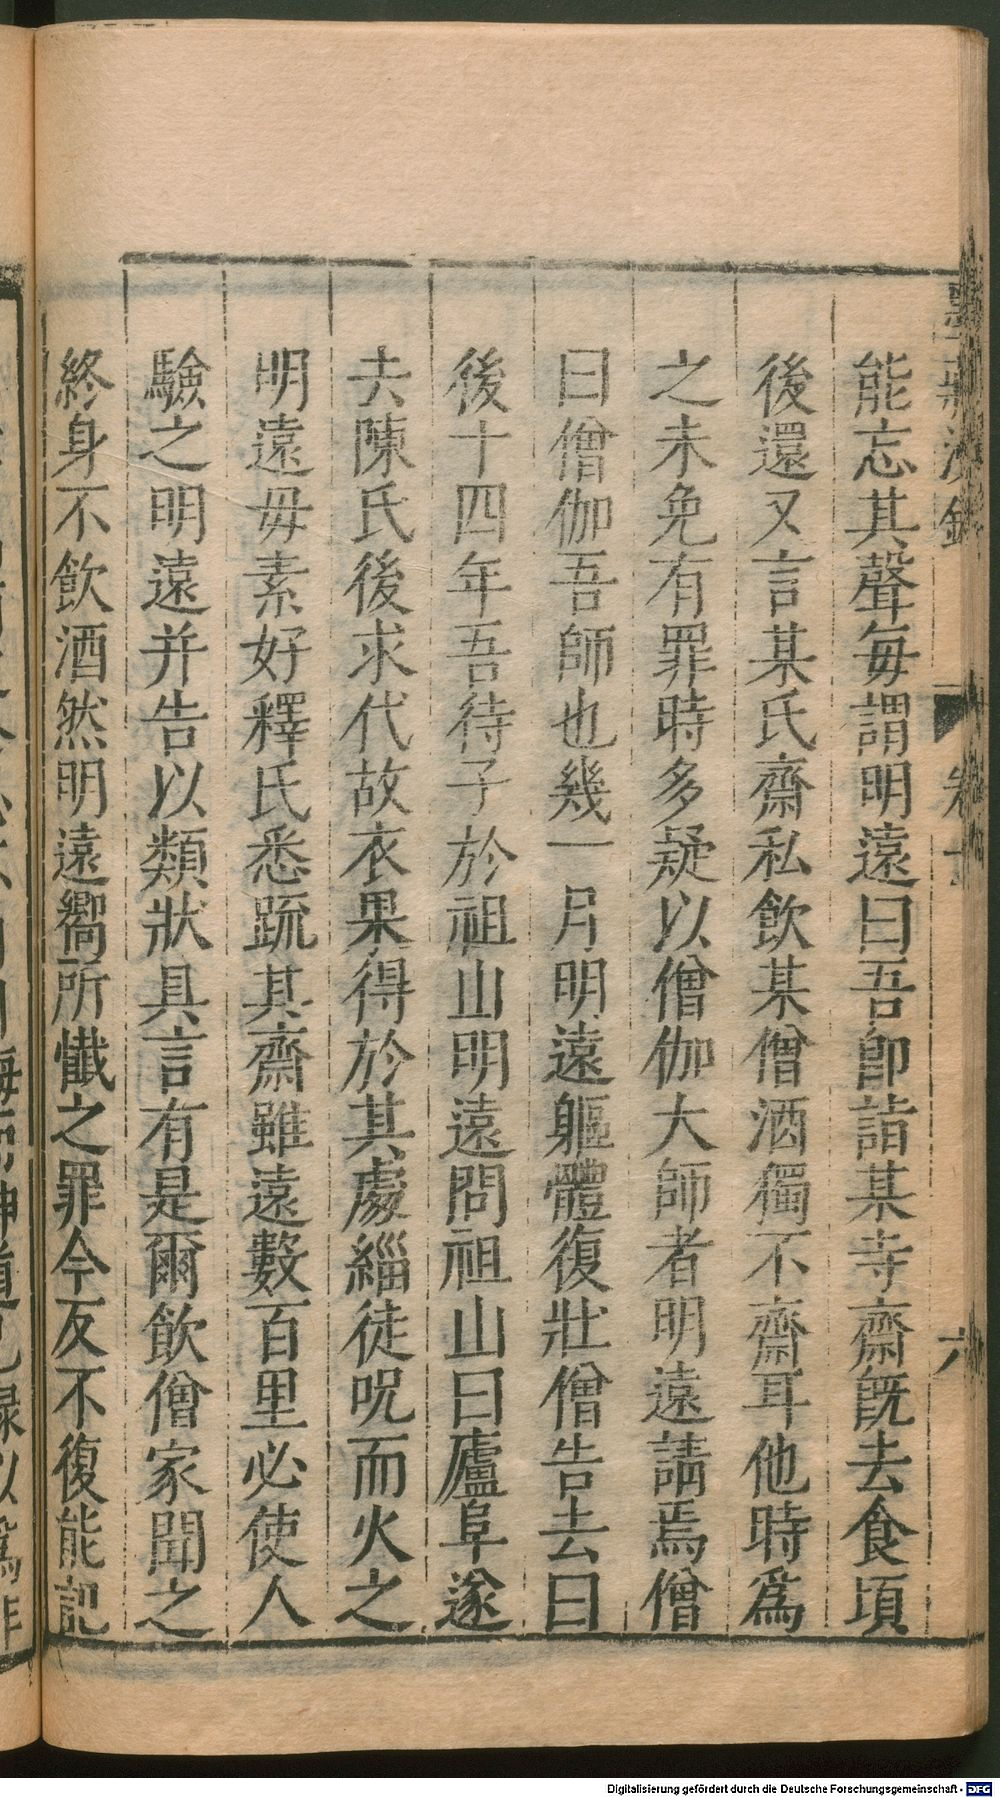 能忘其聲每謂明遠曰吾卽詣某寺齋旣去食頃
後還又言某氏齋私飲某僧酒獨不齋耳他時爲
之未免有罪時多疑以僧伽大師者明遠請焉僧
曰僧伽吾師也幾一月明遠軀體復壯僧告去曰
後十四年吾待子於祖山明遠問祖山曰廬阜遂
去陳氏後求代故衣果得於其處緇徒呪而火之
明遠毋素好釋氏悉䟽其齋雖遠數百里必使人
驗之明遠并告以類狀具言有是爾飲僧家聞之
終身不飲酒然明遠嚮所懺之罪今反不復能記
Digitalisierung gefördert durch die Deutsche Forschungsgemeinschaft - DFG